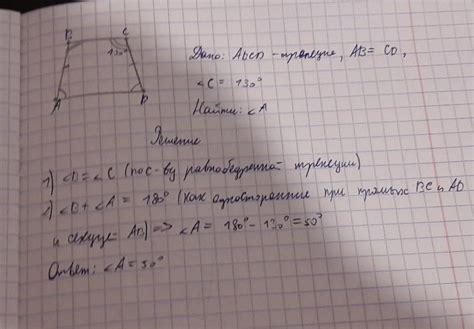 B C
130°
A D
Дано: ABCD - трапеция, AB = CD,
∠C = 130°
Найти: ∠A
Решение
1) ∠B = ∠C (по св-ву равнобедренной трапеции)
2) ∠B + ∠A = 180° (как односторонние при прямых BC и AD
и секущей AB) => ∠A = 180° - 130° = 50°
Ответ: ∠A = 50°